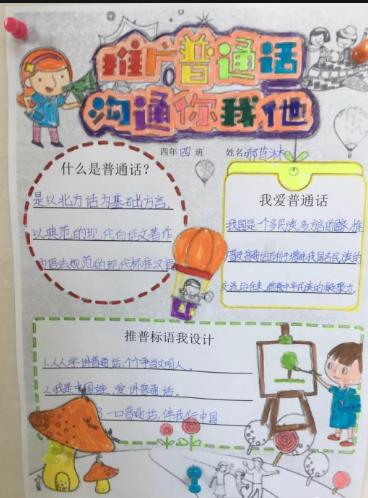 推广普通话
沟通你我他
四年四班
姓名
什么是普通话?
是以北方话为基础方言，
以典范的现代白话文著作
为语法规范的现代标准汉语
我爱普通话
我国是一个多民族、多方言的国家，推
广普及普通话有利于增进我国各民族的
交流与往来，增强中华民族的凝聚力
推普标语我设计
1.人人学讲普通话，个个争当文明人。
2.我是中国娃，爱讲普通话。
3.一口普通话，伴我行中国